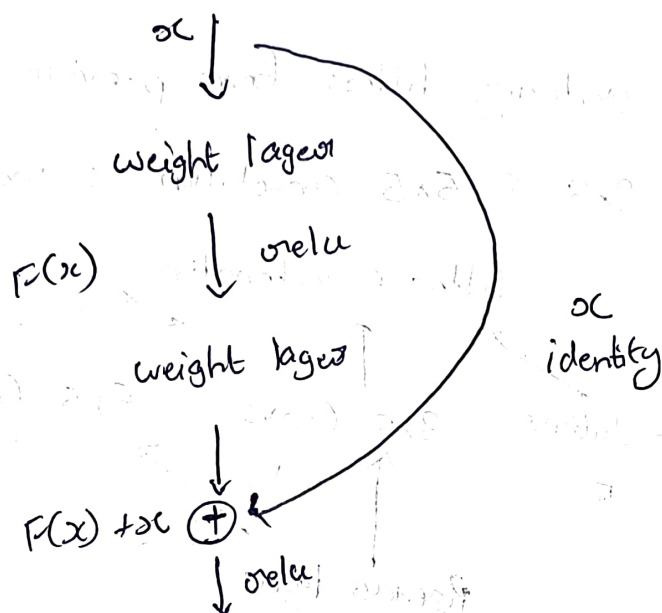 x
weight layer
relu
F(x)
weight layer
x
identity
F(x) + x +
relu